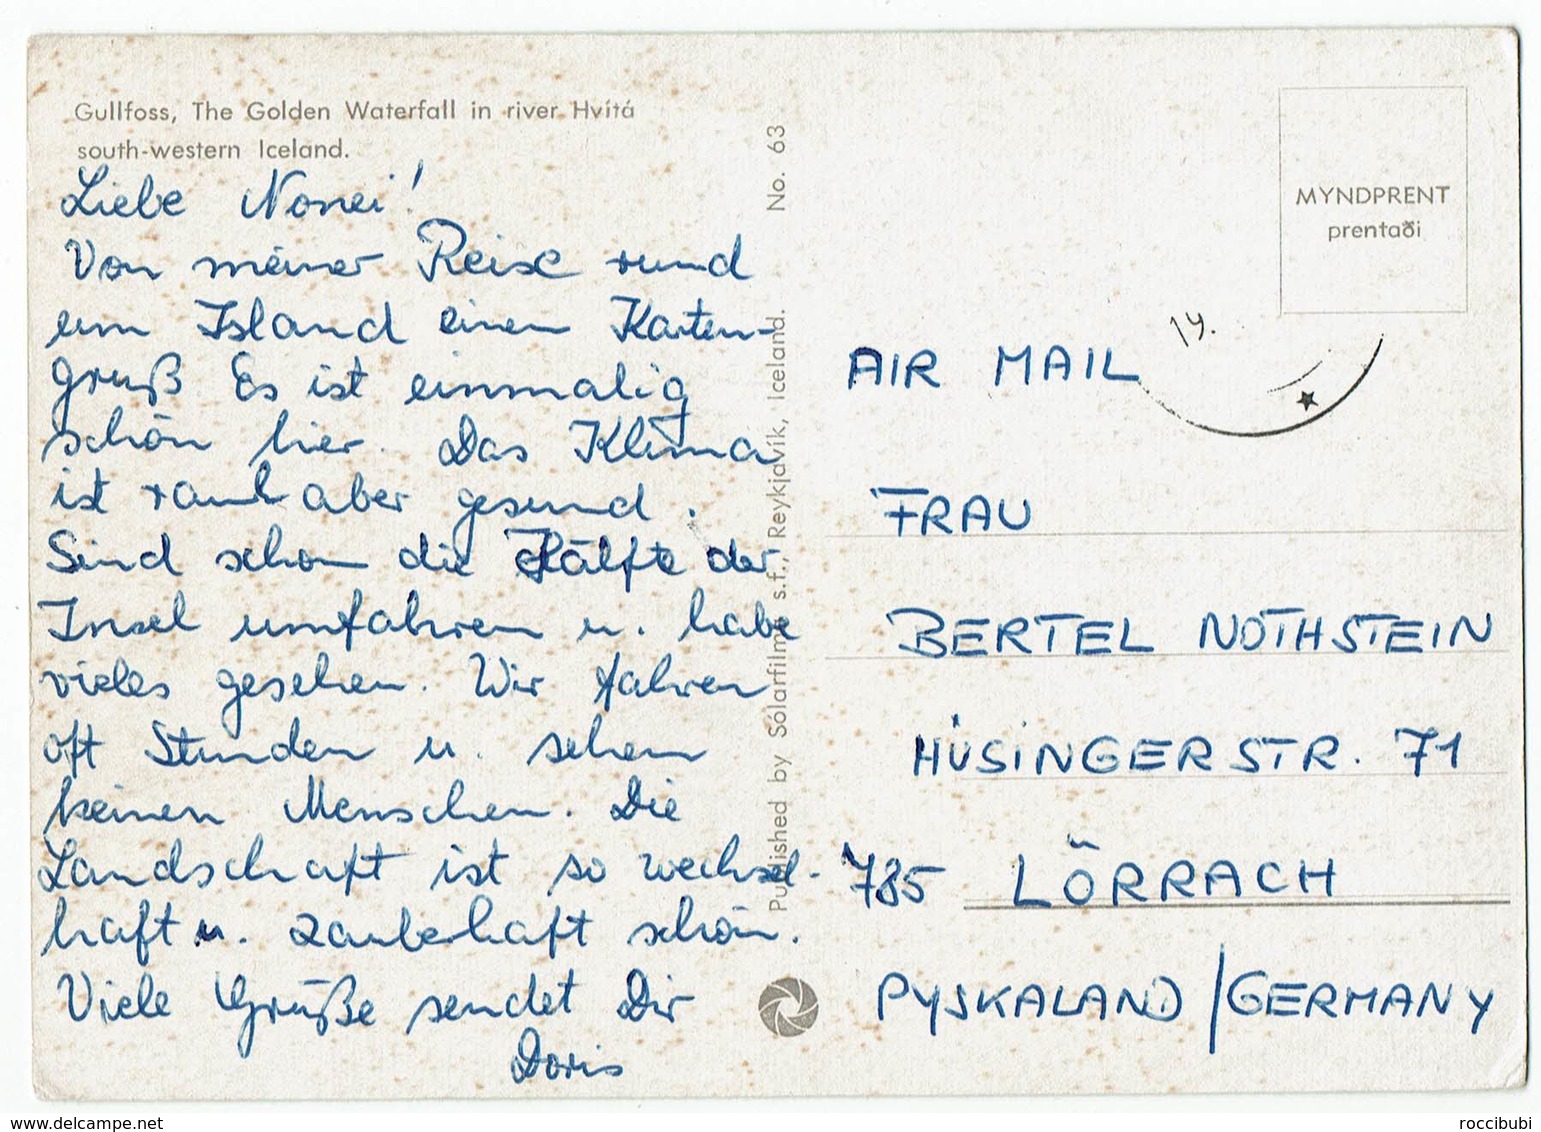 Gullfoss, The Golden Waterfall in river Hvítá
south-western Iceland.
Liebe Nonei!
Von meiner Reise rund
um Island einen Karten-
gruß. Es ist einmalig
schön hier. Das Klima
ist rauh aber gesund.
Sind schon die Hälfte der
Insel umfahren u. habe
vieles gesehen. Wir fahren
oft Stunden u. sehen
keinen Menschen. Die
Landschaft ist so wechsel-
haft u. zauberhaft schön.
Viele Grüße sendet Dir
Doris
Published by Sólarfilma s.f., Reykjavík, Iceland. No. 63
MYNDPRENT
prentaði
19.
AIR MAIL
FRAU
BERTEL NOTHSTEIN
HÜSINGERSTR. 71
785 LÖRRACH
PYSKALAND / GERMANY
www.delcampe.net
roccibubi